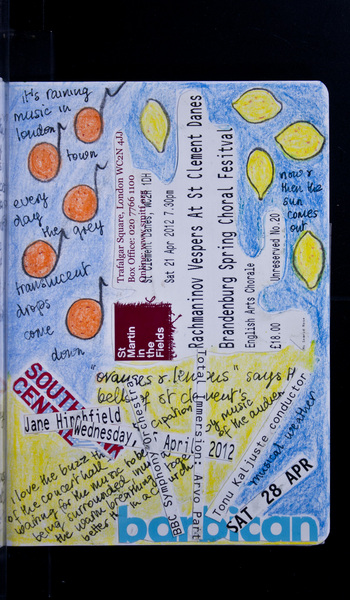 it's raining
music in
london
town
every
day
then grey
translucent
drops
come
down
now &
then the
sun
comes
out
Trafalgar Square, London WC2N 4JJ
Box Office: 020 7766 1100
St Clement Danes, WC2R 1DH
Sat 21 Apr 2012 7.30pm
Rachmaninov Vespers At St Clement Danes
Brandenburg Spring Choral Fesitval
English Arts Chorale
£18.00
Unreserved No.20
St
Martin
in
the
Fields
"oranges & lemons" says the
bells of st clement's
SOUTH
CENT
Jane Hirchfield
Wednesday,
April
2012
BBC Symphony Orchestra
Total Immersion: Arvo Part
Tonu Kaljuste conductor
SAT 28 APR
musical weather
of the audience
I love the buzz the
of the concert hall
waiting for the music to be
being surrounded
the warm breathing
better
in a church
barbican